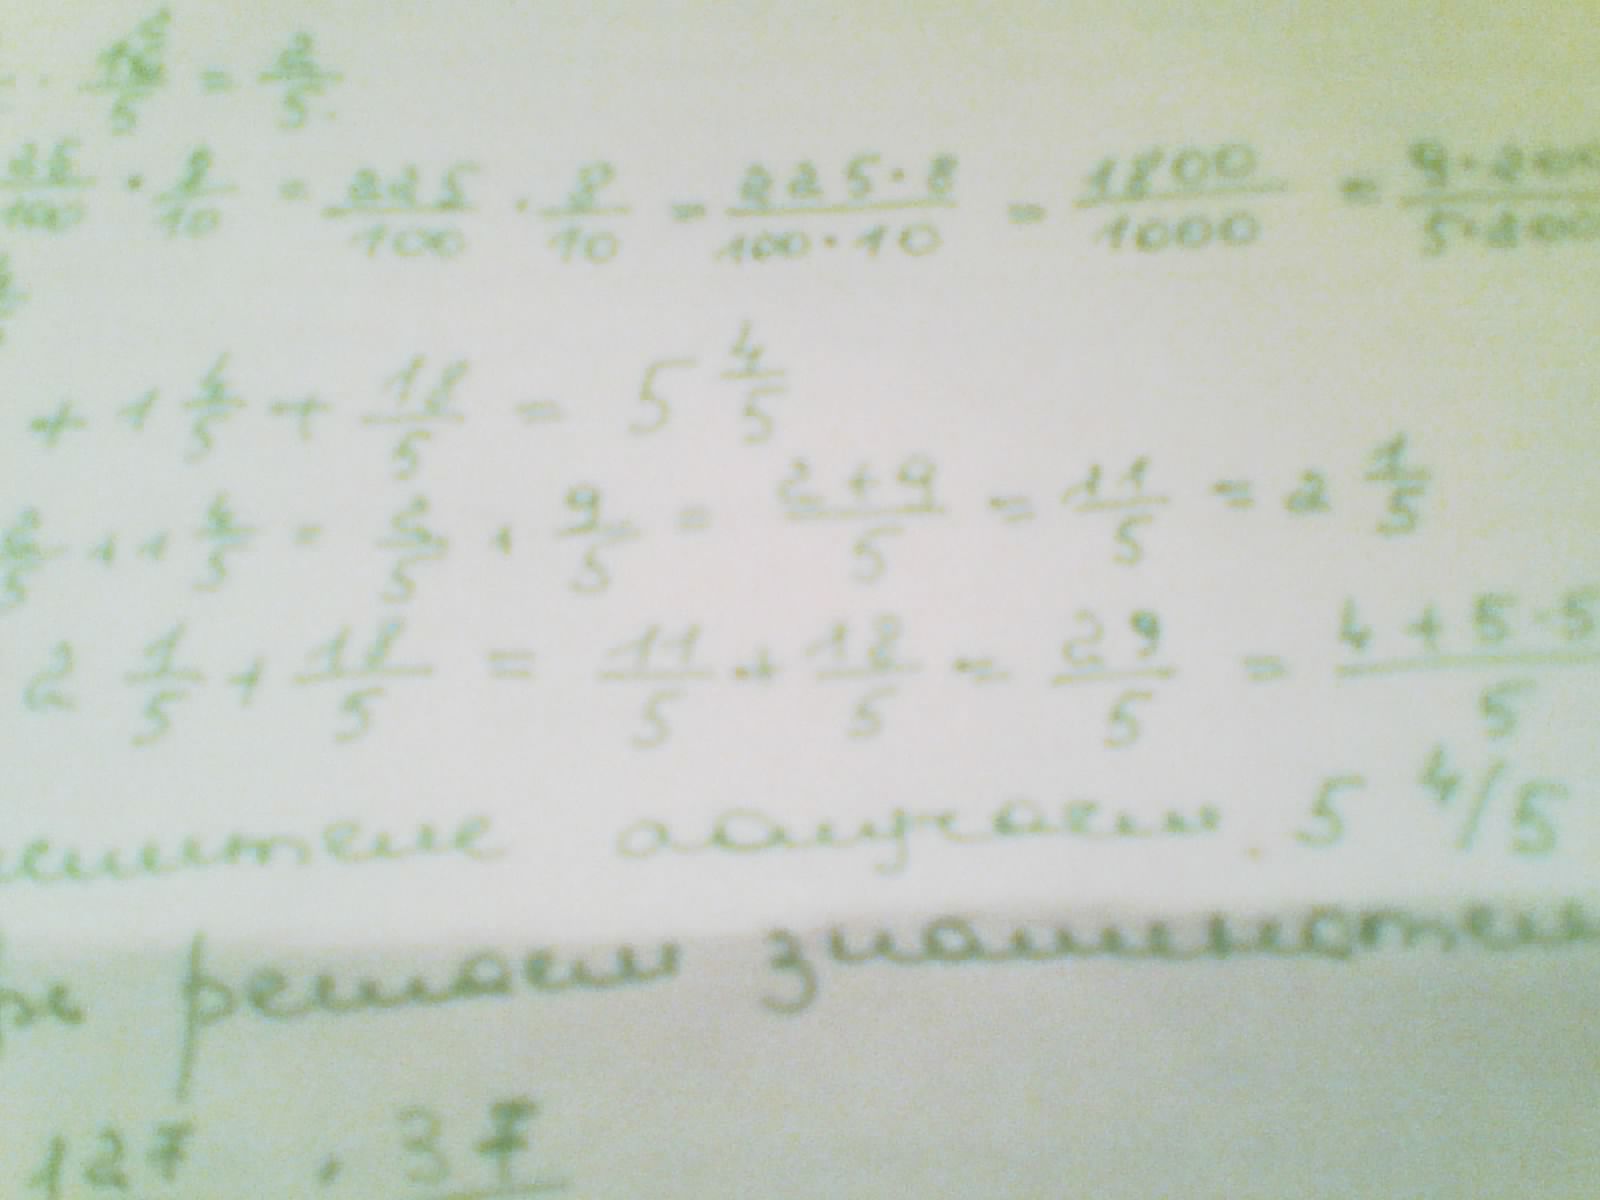 = 2/5
25/100 · 8/10 = 225/100 · 8/10 = 225·8/100·10 = 1800/1000 = 9·200/5·200
+ 1 4/5 + 18/5 = 5 4/5
2/5 + 1 4/5 = 2/5 + 9/5 = 2+9/5 = 11/5 = 2 1/5
2 1/5 + 18/5 = 11/5 + 18/5 = 29/5 = 4+5·5/5
получаем 5 4/5
решаем знаменатель
127 · 37